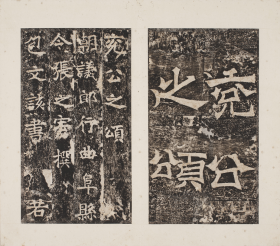 兖公
之頌
兖公之頌
朝議郎行曲阜縣
令張之宏撰
包文該書 若